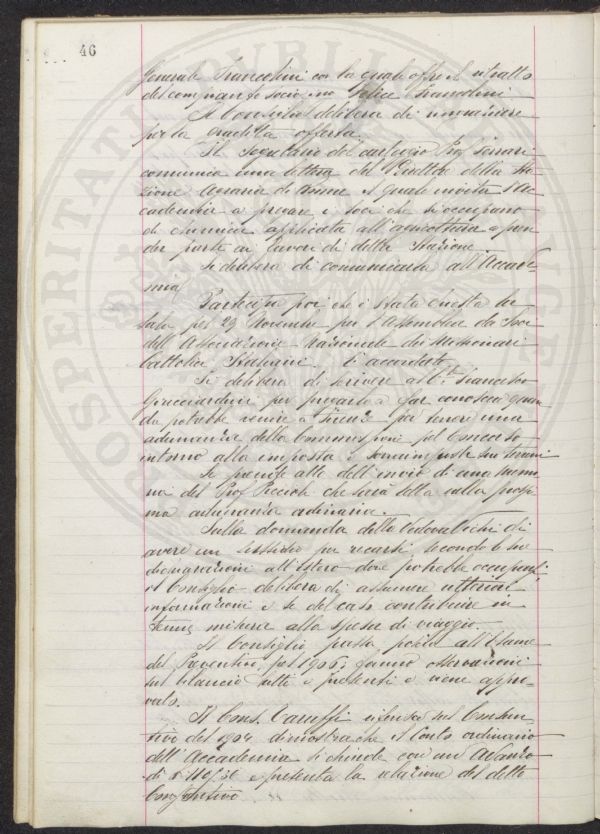 46
Generale Francolini con la quale offre il ritratto
del compianto socio ing. Felice Francolini
Il Consiglio delibera di ringraziare
per la gradita offerta.
Il Segretario del carteggio Prof. Ferrari
comunica una lettera del Direttore della Sta-
zione Agraria di Firenze il quale invita l'Ac-
cademia a pregare i soci che si occupano
di chimica applicata all'agricoltura a pren-
der parte ai lavori di detta Stazione
Si delibera di comunicarla all'Accade-
mia
Partecipa poi che è stata chiesta la
Sala pel 29 Novembre per l'Assemblea dei Soci
dell'Associazione Nazionale dei Missionari
Cattolici Italiani. È accordata
Si delibera di scrivere al Cte Francesco
Guicciardini per pregarlo a far conoscere quan-
do potrebbe venire a Firenze per tenere una
adunanza della Commissione pel Concorso
intorno alla imposta e sovrimposte sui terreni
Si prende atto dell'invio di una memo-
ria del Prof. Piccioli che sarà letta nella prossi-
ma adunanza ordinaria.
Sulla domanda della vedova di
avere un sussidio per recarsi, secondo le sue
dichiarazioni all'Estero dove potrebbe occuparsi,
il Consiglio delibera di assumere ulteriori
informazioni e se del caso contribuire in
tenue misura alla spesa di viaggio.
Il Consiglio passa poscia all'Esame
del Preventivo pel 1906; fanno osservazioni
sul bilancio tutti i presenti e viene appro-
vato.
Il Cons. Caruffi riferisce sul Consun-
tivo del 1904 dimostra che il Conto ordinario
dell'Accademia si chiude con un Avanzo
di e presenta la relazione del detto
Consuntivo